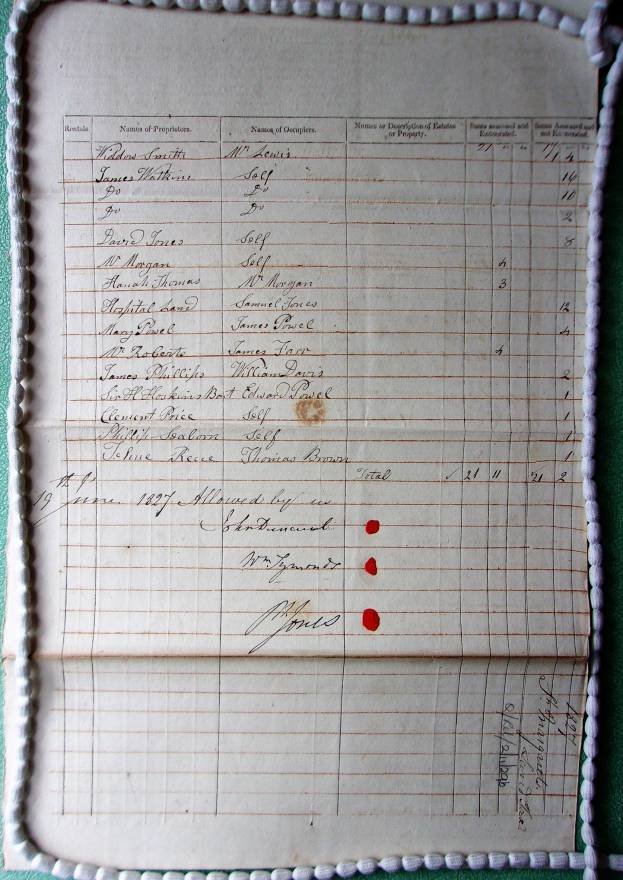 Rentals. Names of Proprietors. Names of Occupiers. Names or Description of Estates or Property. Sums assessed and Exonerated. Sums Assessed and not Exonerated.
21 " " 17 " "
Widdow Smith Mr Lewis 1 4
James Watkins Self 16
Do Do 10
Do Do 2
David Jones Self 8
Mr Morgan Self 4
Hanah Thomas Mr Morgan 3
Hospital Land Samuel Jones 12
Mary Powel James Powel 4
Mr Roberts James Farr 4
James Phillips William Davis 2
Sir H Hoskins Bart Edward Powel 1
Clement Price Self 1
Phillip Seaborn Self 1
Rece Thomas Brown 1
Total 21 11 21 2
19th June 1827 Allowed by us
John
Wm Symonds
Jones
1827
St Margarets
Land Tax